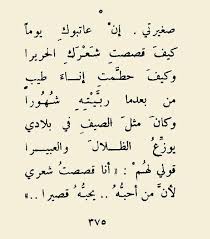 ٥
صغيرتي . إنْ عاتبوكِ يوماً
كيفَ قصصتِ شَعْرَكِ الحريرا
وكيفَ حطَّمتِ إناءَ طيبٍ
من بعدما ربَّيْتِهِ شُهُورَا
وكانَ مثلَ الصيفِ في بلادي
يوزِّعُ الظلالَ والعبيرا
قولي لهُمْ : « أنا قصصتُ شعري
لأنَّ من أحبُّهُ .. يحبُّهُ قصيرا .. »
٣٧٥